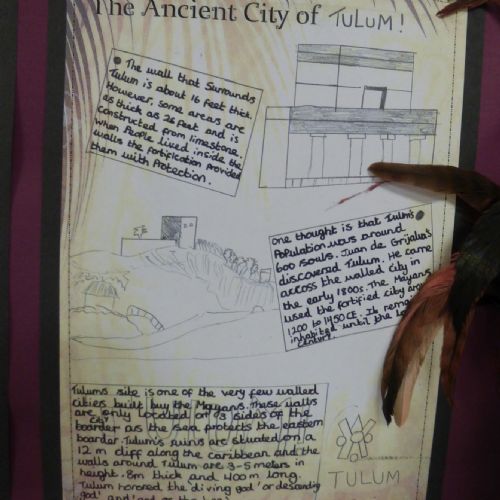 The Ancient City of TULUM!
The wall that Surrounds
Tulum is about 16 feet thick.
However, some areas are
as thick as 26 feet and is
constructed from limestone.
When People lived inside the
walls the fortification provided
them with Protection.
One thought is that Tulum's
Population was around
600 souls. Juan de Grijalva's
discovered Tulum. He came
across the walled city in
the early 1800s. The Mayans
used the fortified city
1200 to 1450 CE. It
inhabited until the
Century.
Tulums site is one of the very few walled
cities built buy the Mayans. These walls
are only located on 3 sides of the
City
boarder as the sea protects the eastern
boarder. Tulum's ruins are situated on a
12 m cliff along the caribbean and the
walls around Tulum are 3-5 meters in
height. 8m thick and 400 m long.
Tulum honored the diving god' or descending
god'
TULUM